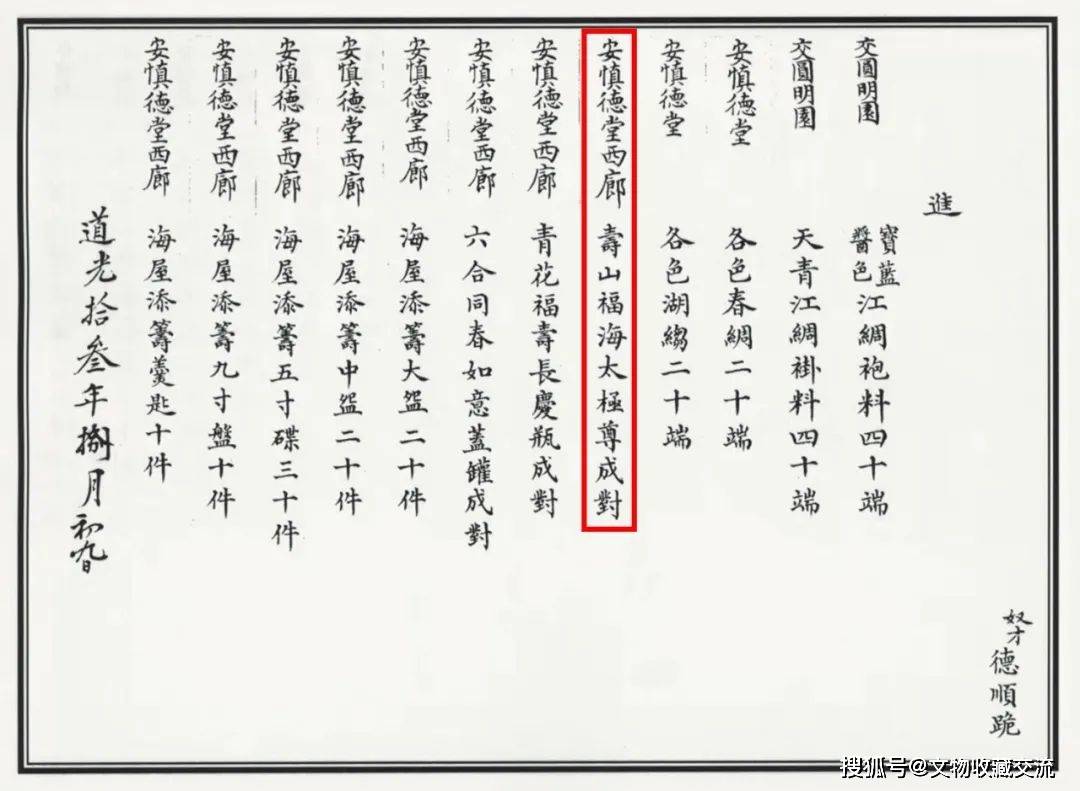 奴才德順跪
進
寶藍醬色江綢袍料四十端 交圓明園
天青江綢褂料四十端 交圓明園
各色春綢二十端 安慎德堂
各色湖縐二十端 安慎德堂
壽山福海太極尊成對 安慎德堂西廊
青花福壽長慶瓶成對 安慎德堂西廊
六合同春如意蓋罐成對 安慎德堂西廊
海屋添籌大盌二十件 安慎德堂西廊
海屋添籌中盌二十件 安慎德堂西廊
海屋添籌五寸碟三十件 安慎德堂西廊
海屋添籌九寸盤十件 安慎德堂西廊
海屋添籌羹匙十件 安慎德堂西廊
道光拾叁年捌月初九日
搜狐号@文物收藏交流